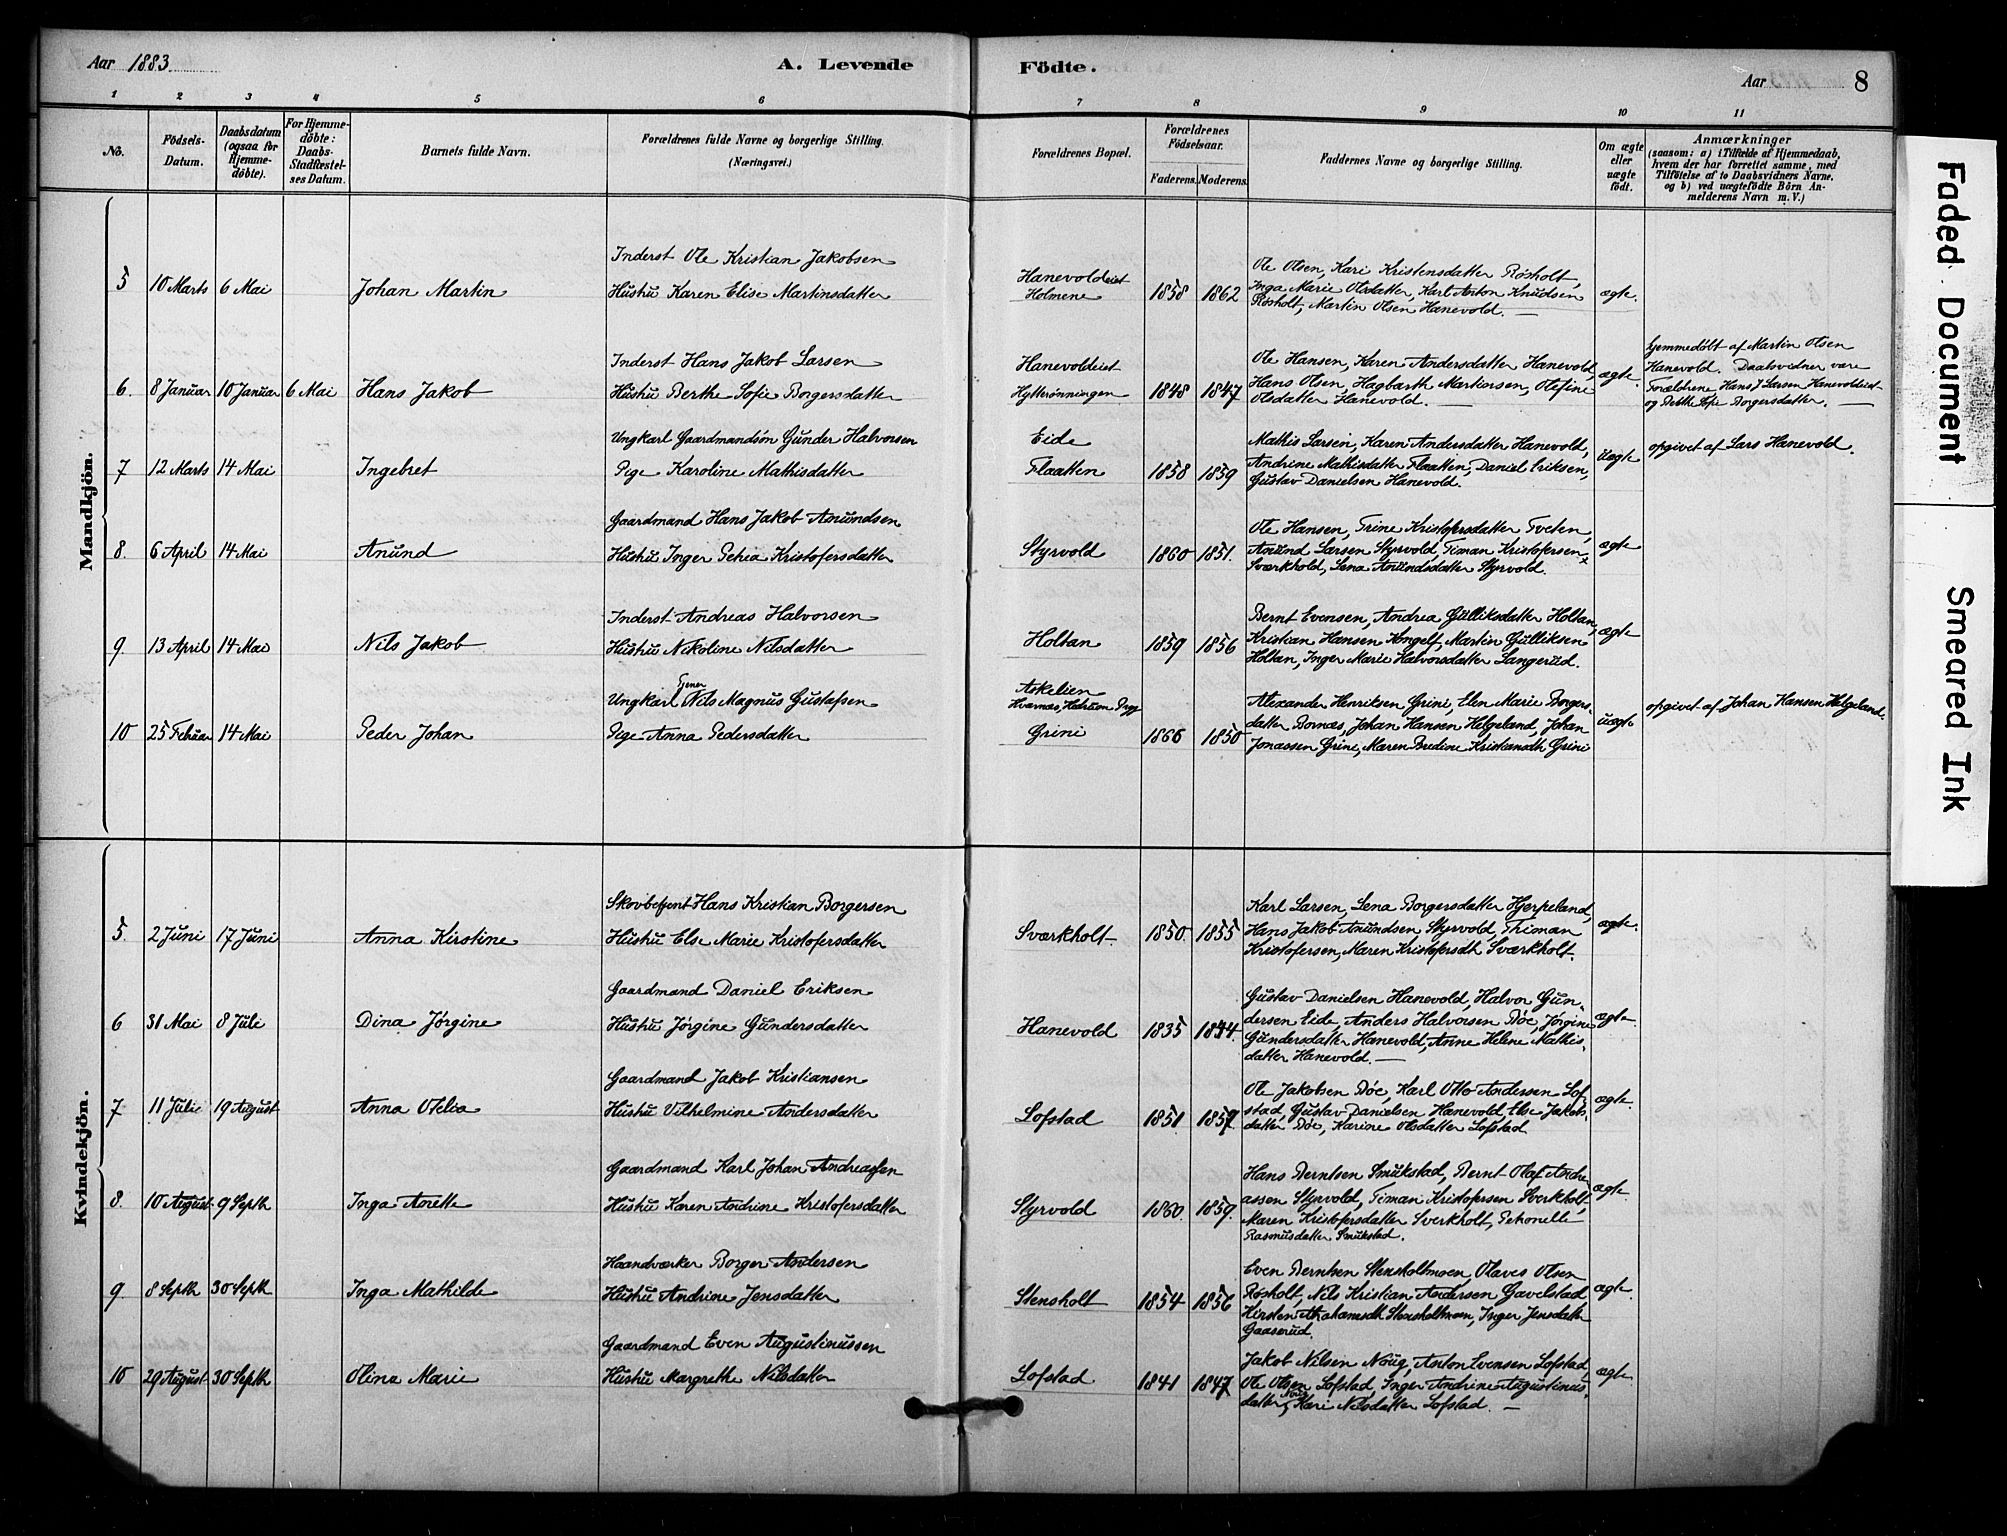 Aar 1883. A. Levende Födte. Aar 8
1 2 3 4 5 6 7 8 9 10 11
No.
Födsels-Datum.
Daabsdatum (ogsaa for Hjemme-döbte).
For Hjemme-döbte: Daabs-Stadfæstel-ses Datum.
Barnets fulde Navn.
Forældrenes fulde Navne og borgerlige Stilling.
(Næringsvei.)
Forældrenes Bopæl.
Forældrenes Födselsaar.
Faderens. Moderens.
Faddernes Navne og borgerlige Stilling.
Om ægte eller uægte födt.
Anmærkninger
(saasom: a) i Tilfælde af Hjemmedaab,
hvem der har forrettet samme, med
Tilföielse af to Daabsvidners Navne,
og b) ved uægtefödte Börn An-
melderens Navn m. V.)
Mandkjön.
5 10 Marts 6 Mai Johan Martin
Inderst Ole Kristian Jakobsen
Hustru Karen Elise Martinsdatter
Hanevoldeiet
Holmene 1858 1862
Ole Olsen, Kari Kristensdatter Røsholt,
Inga Marie Olsdatter, Karl Anton Knudsen
Røsholt, Martin Olsen Hanevold. —
ægte.
6. 8 Januar 10 Januar 6 Mai Hans Jakob
Inderst Hans Jakob Larsen
Hustru Berthe Sofie Borgersdatter
Hanevoldeiet
Hytterønningen 1848 1847
Ole Hansen, Karen Andersdatter Hanevold,
Hans Olsen, Hagbarth Martinsen, Olefine
Olsdatter Hanevold. —
ægte
hjemmedøbt af Martin Olsen
Hanevold. Daabsvidner vare
Forældrene Hans J Larsen Hanevoldeiet
og Berthe Sofie Borgersdatter. —
7 12 Marts 14 Mai Ingebret
Ungkarl Gaardmandsøn Gunder Halvorsen
Pige Karoline Mathisdatter
Eide
Flaatten 1858 1859
Mathis Larsen, Karen Andersdatter Hanevold,
Andrine Mathisdatter Flaatten, Daniel Eriksen,
Gustav Danielsen Hanevold.
uægte
opgivet af Lars Hanevold.
8. 6 April 14 Mai Anund
Gaardmand Hans Jakob Anundsen
Hustru Inger Petrea Kristofersdatter
Styrvold 1860 1851.
Ole Hansen, Trine Kristofersdatter Tveten,
Anund Larsen Styrvold, Timan Kristofersen
Sværkhold, Lena Anundsdatter Styrvold.
ægte
9. 13 April 14 Mai Nils Jakob
Inderst Andreas Halvorsen
Hustru Nikoline Nilsdatter
Holtan 1859 1856
Bernt Evensen, Andrea Gulliksdatter Holtan,
Kristian Hansen Kongelf, Martin Gulliksen
Holtan, Inger Marie Halvorsdatter Langerud.
ægte
10 25 Februar 14 Mai Peder Johan
Ungkarl Tjener Nils Magnus Gustafsen
Pige Anna Pedersdatter
Askelien
Hvarnæs,
Grini 1866 1850
Alexander Henriksen Grini, Elen Marie Borgers-
datter Bornæs, Johan Hansen Helgeland, Johan
Jonassen Grini, Maren Bredine Kristiansdtr Grini
uægte
opgivet af Johan Hansen Helgeland.
Kvindekjön.
5. 2 Juni 17 Juni Anna Kirstine
Skovbetjent Hans Kristian Borgersen
Hustru Else Marie Kristofersdatter
Sværkholt 1850. 1855
Karl Larsen, Lena Borgersdatter Hjerpeland,
Hans Jakob Anundsen Styrvold, Thiman
Kristofersen, Maren Kristofersdtr Sværkholt.
ægte.
6 31 Mai 8 Juli Dina Jørgine
Gaardmand Daniel Eriksen
Hustru Jørgine Gundersdatter
Hanevold 1835 1844.
Gustav Danielsen Hanevold, Halvor Gun-
dersen Eide, Anders Halvorsen Bøe, Jørgine
Gundersdatter Hanevold, Anne Helene Mathis-
datter Hanevold. —
ægte.
7 11 Julie 19 August Anna Otelia
Gaardmand Jakob Kristiansen
Hustru Vilhelmine Andersdatter
Lofstad 1851 1857
Ole Jakobsen Bøe, Karl Otto Andersen Lof-
stad, Gustav Danielsen Hanevold, Else Jakobs-
datter Bøe, Karine Olsdatter Lofstad
ægte.
8. 10 August 9 Septbr Inga Anette
Gaardmand Karl Johan Andreassen
Hustru Karen Andrine Kristofersdatter
Styrvold 1860. 1859.
Hans Berntsen Smukstad, Bernt Olaf Andre-
assen Styrvold, Timan Kristofersen Sverkholt,
Maren Kristofersdatter Sverkholt, Petronelle
Rasmusdatter Smukstad.
ægte.
9. 8 Septbr 30 Septbr Inga Mathilde
Haandværker Borger Andersen
Hustru Andrine Jensdatter
Stensholt 1854 1856
Even Berntsen Stensholtmoen, Olaves Olsen
Røsholt, Nils Kristian Andersen Gavelstad
Kirsten Abrahamsdtr Stensholtmoen, Inger Jensdatter
Gaaserud.
ægte.
10 29 August 30 Septbr Oline Marie
Gaardmand Even Augustinussen
Hustru Margrethe Nilsdatter
Lofstad. 1841 1847
Jakob Nilsen Noug, Anton Evensen Lofstad,
Ole Olsen Lofstad, Inger Andrine Augustinus-
datter Noug, Kari Nilsdatter Lofstad. —
ægte.
Faded Document
Smeared Ink